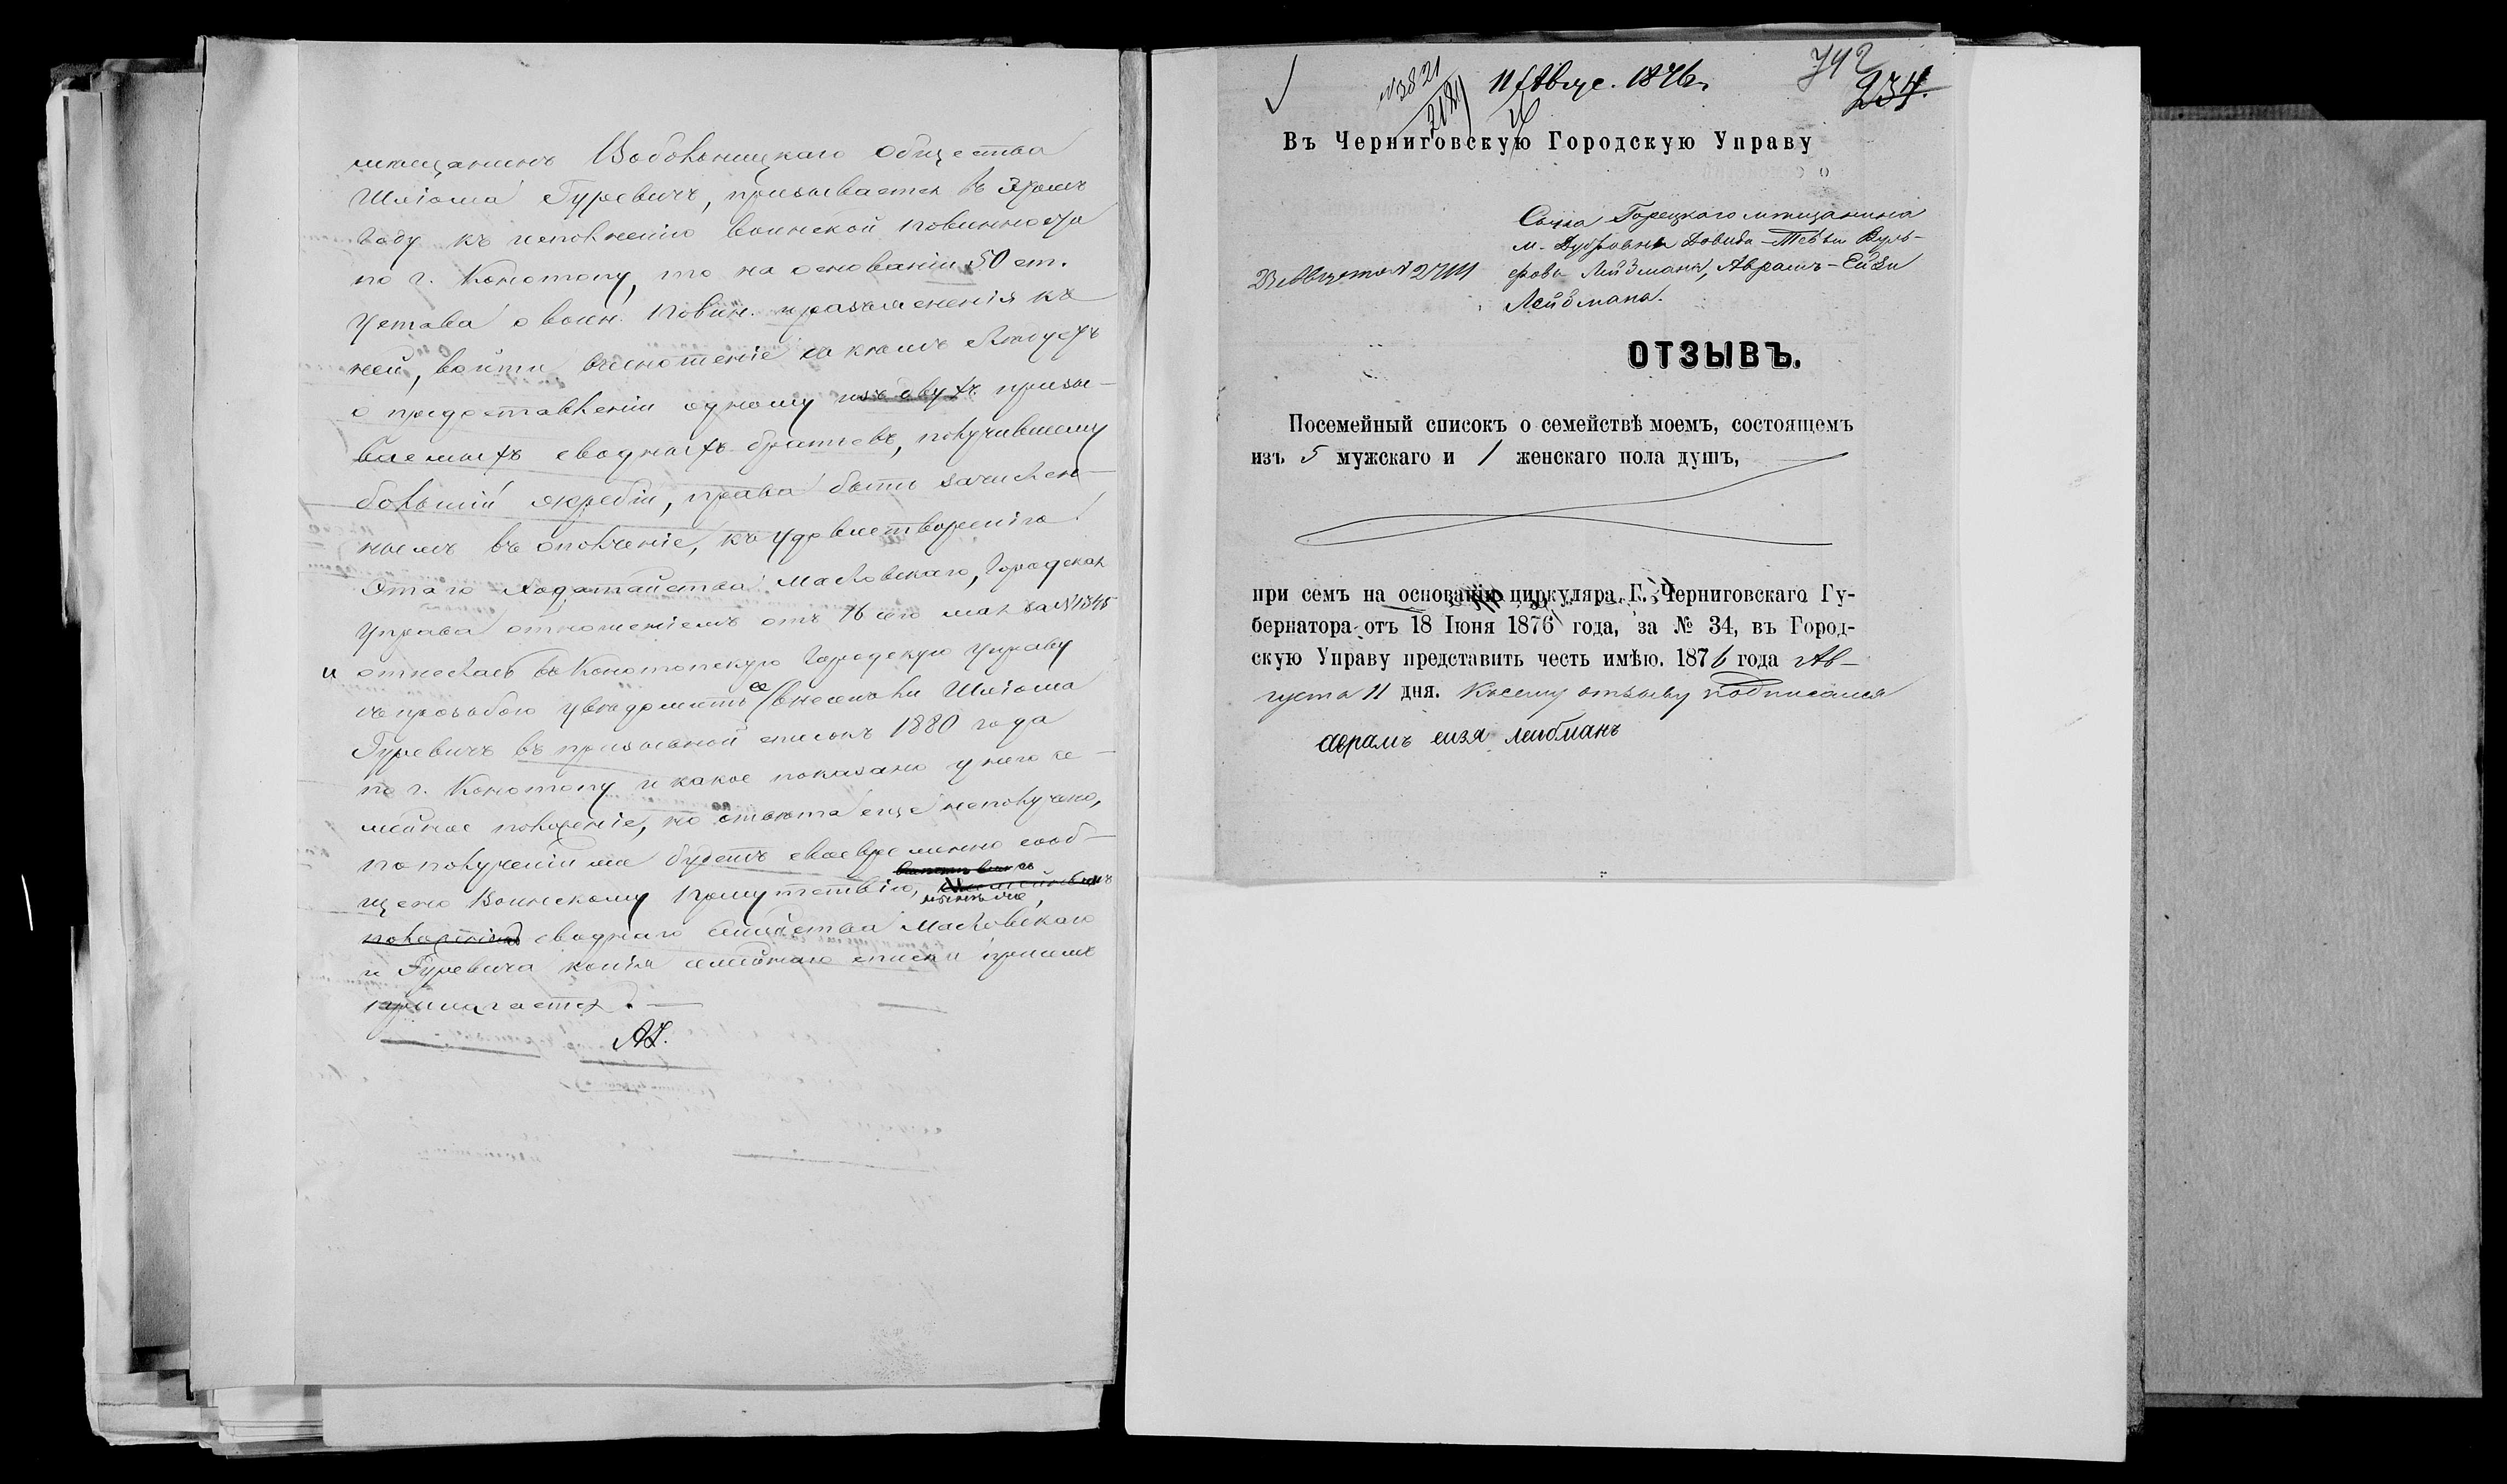 мещанинъ Вобольницкаго Общества
Шліома Гуревичъ, призывается въ Этомъ
Году къ исполненію воинской повинности
по г. Конотопу, то на основаніи 50 ст.
Устава о воин. повин. и разъясненія къ
ней, войти
о предоставленіи одному изъ двухъ призы-
ваемыхъ сводныхъ братьевъ, получившему
большій жребій, права быть зачислен-
нымъ въ ополченіе, къ удовлетворенію
Этаго Ходатайства Масловскаго, Городская
Управа отношеніемъ отъ 16 сего мая за № 1345
и отнеслась въ Конотопскую Городскую Управу
съ прозьбою увѣдомить ее внесенъ ли Шліома
Гуревичъ въ призывной списокъ 1880 года
по г. Конотопу и какое показано у него се-
мейное положеніе, но отвѣта еще неполучено,
по полученіи же будетъ своевременно сооб-
щено Воинскому Присутствію,
положеніи своднаго семейства Масловскаго
и Гуревича копія семейнаго списка присемъ
прилагается. —
742
№ 3821
11 Авгус. 1876 г.
234.
2121
26
Въ Черниговскую Городскую Управу
Сына Горецкаго мещанина
м. Дубровны Довида-Тевьи Вуль-
фова Лейбмана, Аврамъ-Ейзи
Лейбмана.
23 Августа № 2711
ОТЗЫВЪ.
Посемейный списокъ о семействѣ моемъ, состоящемъ
изъ 5 мужскаго и 1 женскаго пола душъ,
при семъ на основаніи циркуляра Г. Черниговскаго Гу-
бернатора отъ 18 Іюня 1876 года, за № 34, въ Город-
скую Управу представить честь имѣю. 1876 года Ав-
густа 11 дня. Ксему отзыву подписался
аврамъ еизя леибманъ